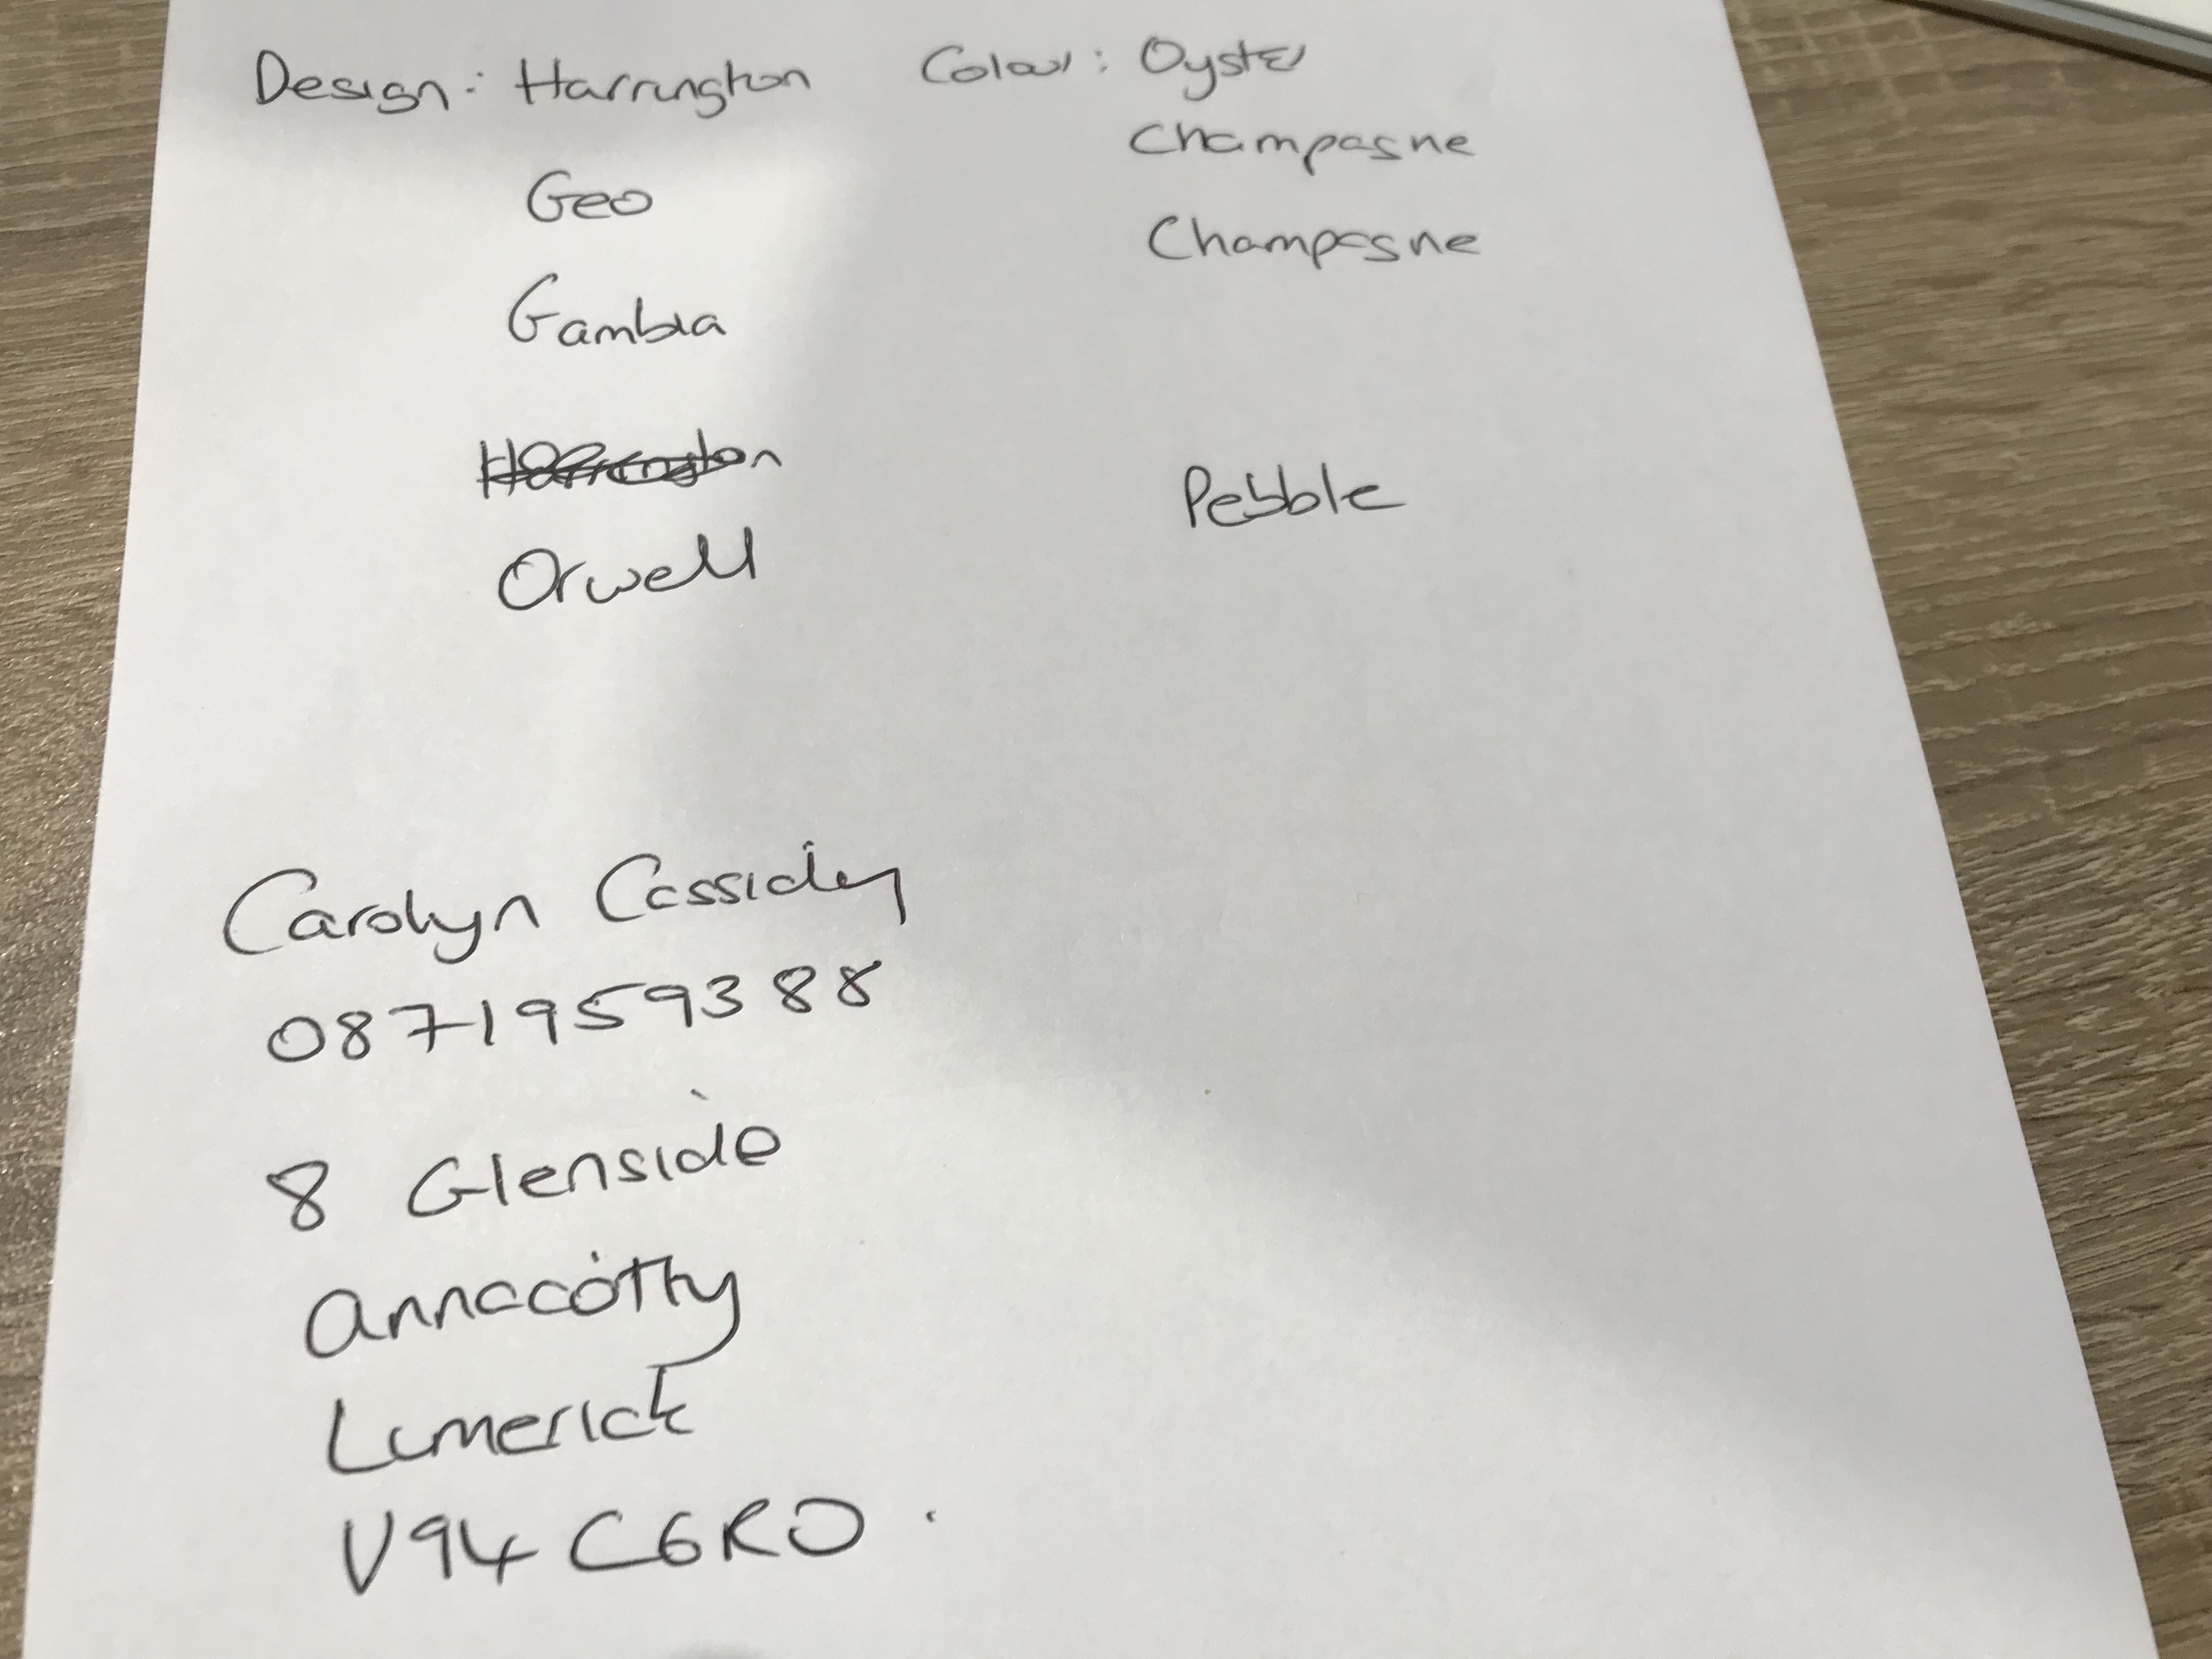 Design: Harrington Colour: Oyster
Champagne
Geo
Champagne
Gambia
Harrington
Pebble
Orwell
Carolyn Cassidy
0871959388
8 Glenside
Annacotty
Limerick
V94 C6R0